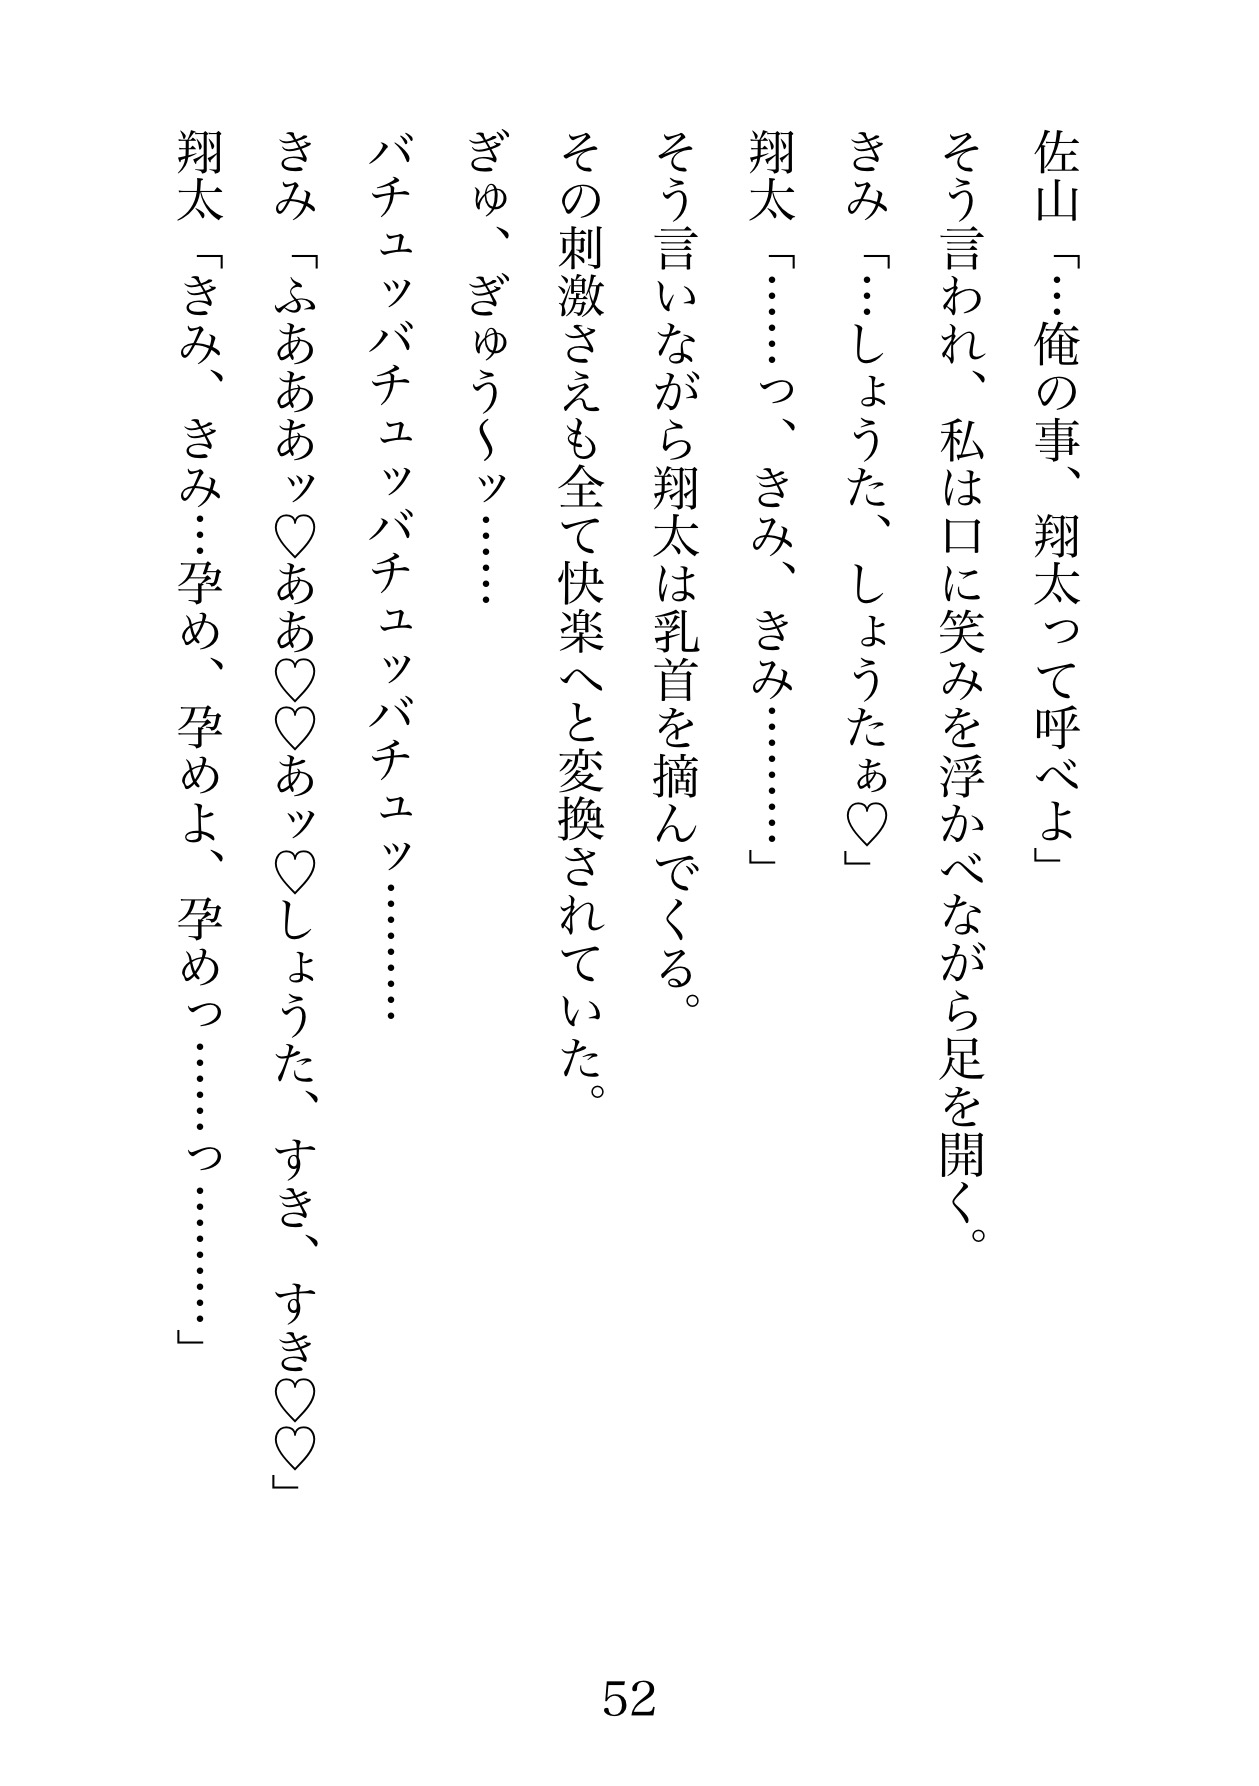 佐山「…俺の事、翔太って呼べよ」
そう言われ、私は口に笑みを浮かべながら足を開く。
きみ「…しょうた、しょうたぁ♡」
翔太「……っ、きみ、きみ………」
そう言いながら翔太は乳首を摘んでくる。
その刺激さえも全て快楽へと変換されていた。
ぎゅ、ぎゅう〜ッ……
バチュッバチュッバチュッバチュッ………
きみ「ふあああッ♡ああ♡♡あッ♡しょうた、すき、すき♡♡」
翔太「きみ、きみ…孕め、孕めよ、孕めっ……っ………」
52